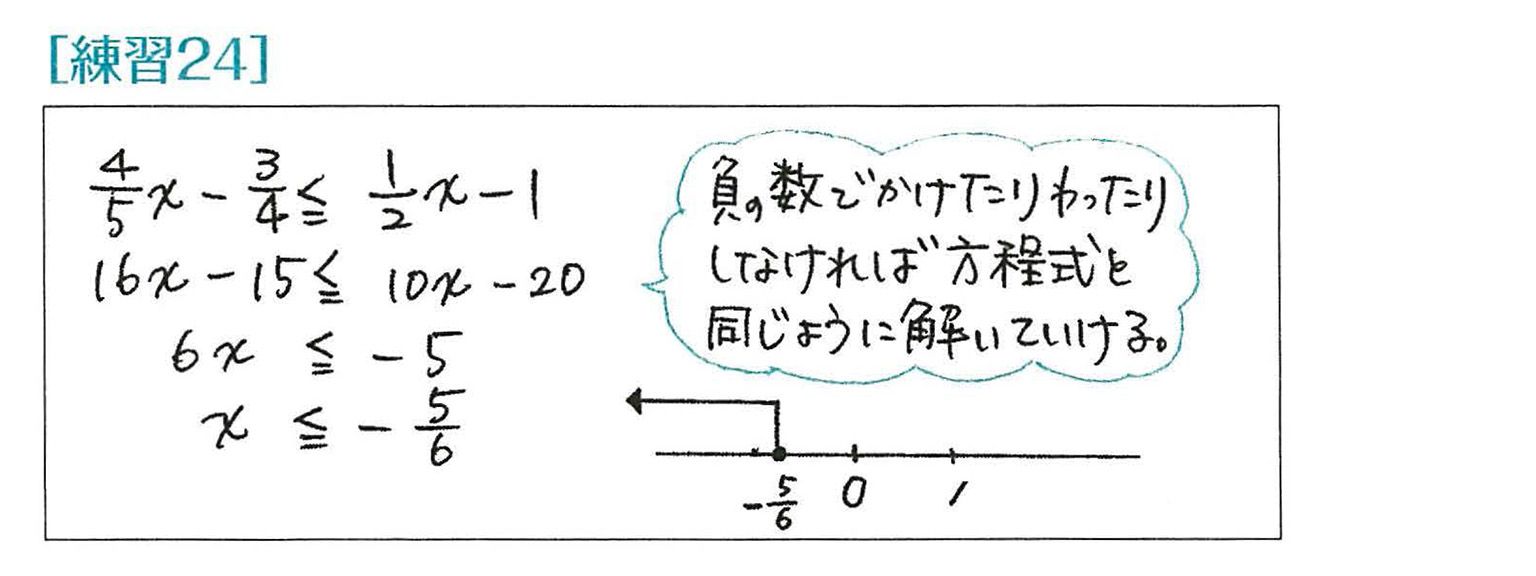 [練習24]
4/5 x - 3/4 ≦ 1/2 x - 1
16x - 15 ≦ 10x - 20
6x ≦ -5
x ≦ - 5/6
負の数でかけたりわったり
しなければ方程式と
同じように解いていける。
-5/6 0 1